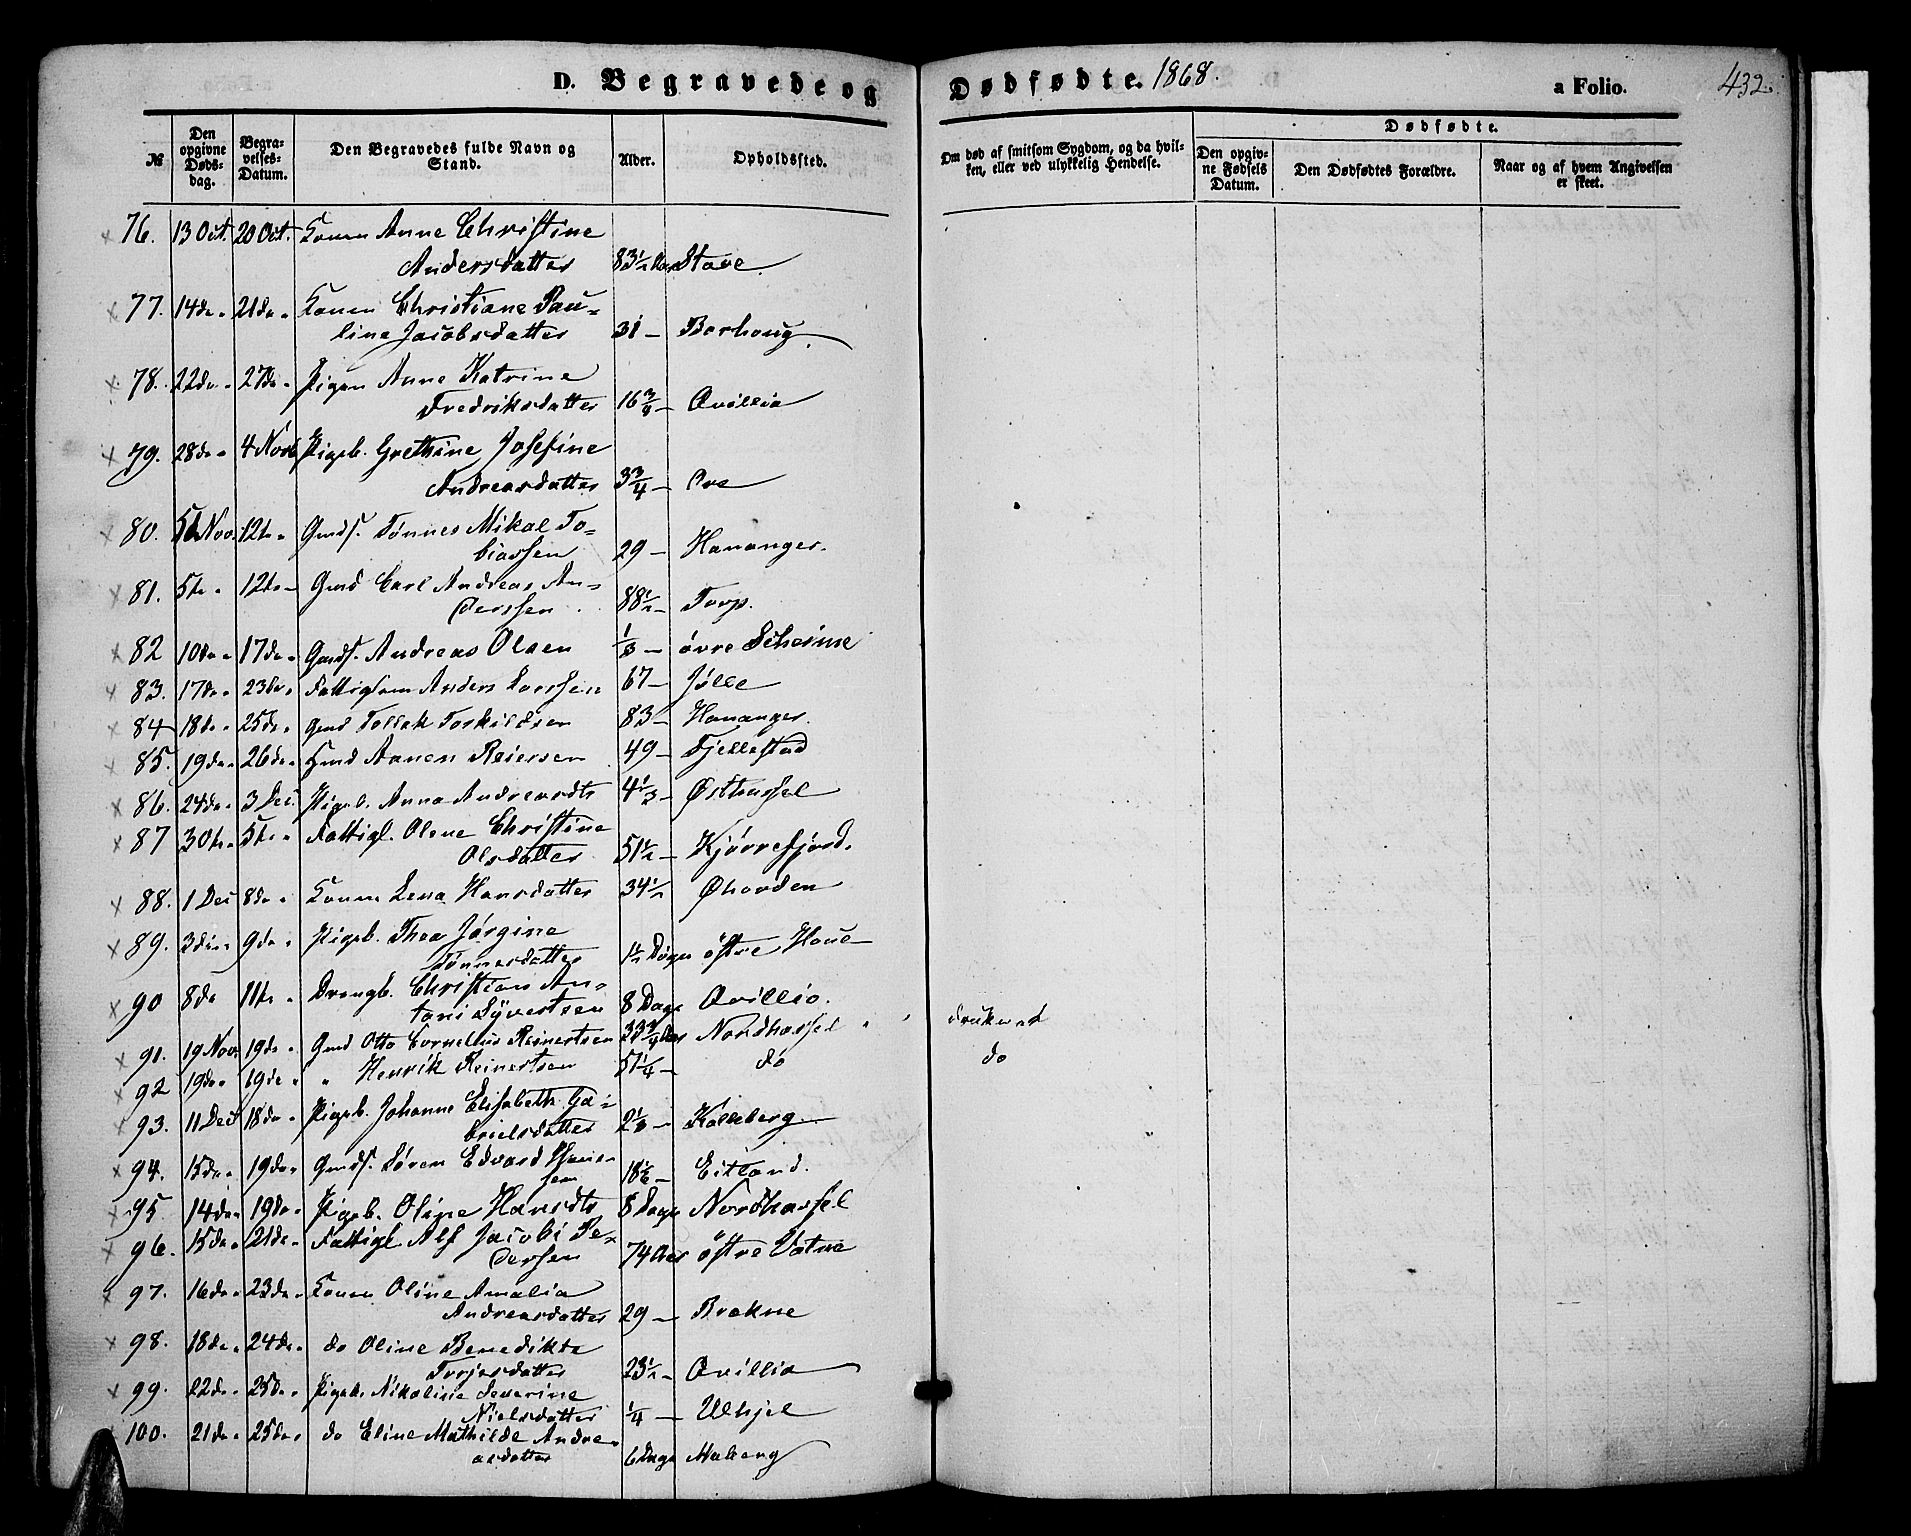 D. Begravede og Dødfødte. 1868. a Folio. 432.
№ Den opgivne Døds-dag. Begra-velses-Datum. Den Begravedes fulde Navn og Stand. Alder. Opholdssted. Om død af smitsom Sygdom, og da hvil-ken, eller ved ulykkelig Hendelse. Dødfødte. Den opgiv-ne Fødsels Datum. Den Dødfødtes Forældre. Naar og af hvem Angivelsen er skeet.
76. 13 Oct. 20 Oct. Konen Anne Christine
Andersdatter 83½ Stave.
77. 14 do 21 do Konen Christiane Pau-
line Jacobsdatter 31 – Borhoug.
78. 22 do 27 do Pigen Anne Katrine
Fredriksdatter 16¾ – Qvillia
79. 28 do 4 Nov. Pigeb. Grethine Josefine
Andreasdatter 3¾ – Ore
80. 5 Nov. 12 te Gmds. Tønnes Mikal To-
biassen 29 – Hananger.
81. 5 te 12 te Gmd Carl Andreas An-
derssen 88½ – Torp.
82 10 do 17 do Gmds. Andreas Olsen ⅓ – øvre Scheime
83. 17 do 23 do Fattiglem Anders Larssen 67 – Jølle
84 18 do 25 do Gmd Tollak Torkildsen 83 – Hananger.
85. 19 do 26 do Gmd Aanen Reiersen 49 – Fjellestad
86. 24 do 3 Dec Pigeb. Anna Andreasdtr 4⅓ – Østhassel
87 30 te 5 te Fattigl. Olene Christine
Olsdatter 51½ – Kjørrefjord.
88. 1 Dec 8 do Konen Lena Hansdatter 34½ Ohorden
89. 3 die 9 do Pigeb. Thea Jørgine
Tønnesdatter 1½ Døgn østre Haue
90 8 do 11 te Drengb. Christian An-
toni Syvertsen 8 Dage Qvillio.
91. 19 Nov. 19 do Gmd Otto Cornelius Reinertsen 33¾ Aar Nordhassel druknet
92 19 do 19 de " Henrik Reinertsen 51¼ – do do
93. 11 Dec 18 do Pigeb. Johanne Elisabeth Ga-
brielsdatter 2⅓ – Kalleberg
94. 15 do 19 do Gmds. Søren Edvard Hans-
sen 18⅙ – Eitland.
95 14 do 19 do Pigeb. Oline Hansdtr 8 Dage Nordhassel
96. 15 do 21 do Fattigl Alf Jacobi Pe-
dersen 74 Aar østre Vatne
97. 16 do 23 do Konen Oline Amalia
Andreasdatter 29 – Brekne
98. 18 do 24 do do Oline Benedikte
Torjesdatter 23½ – Qvillia
99. 22 do 25 do Pigeb. Nikoline Severine
Nielsdatter ¼ – Ulhjel
100. 21 do 25 do do Eline Mathilde Andre-
asdatter 6 Dage Maberg